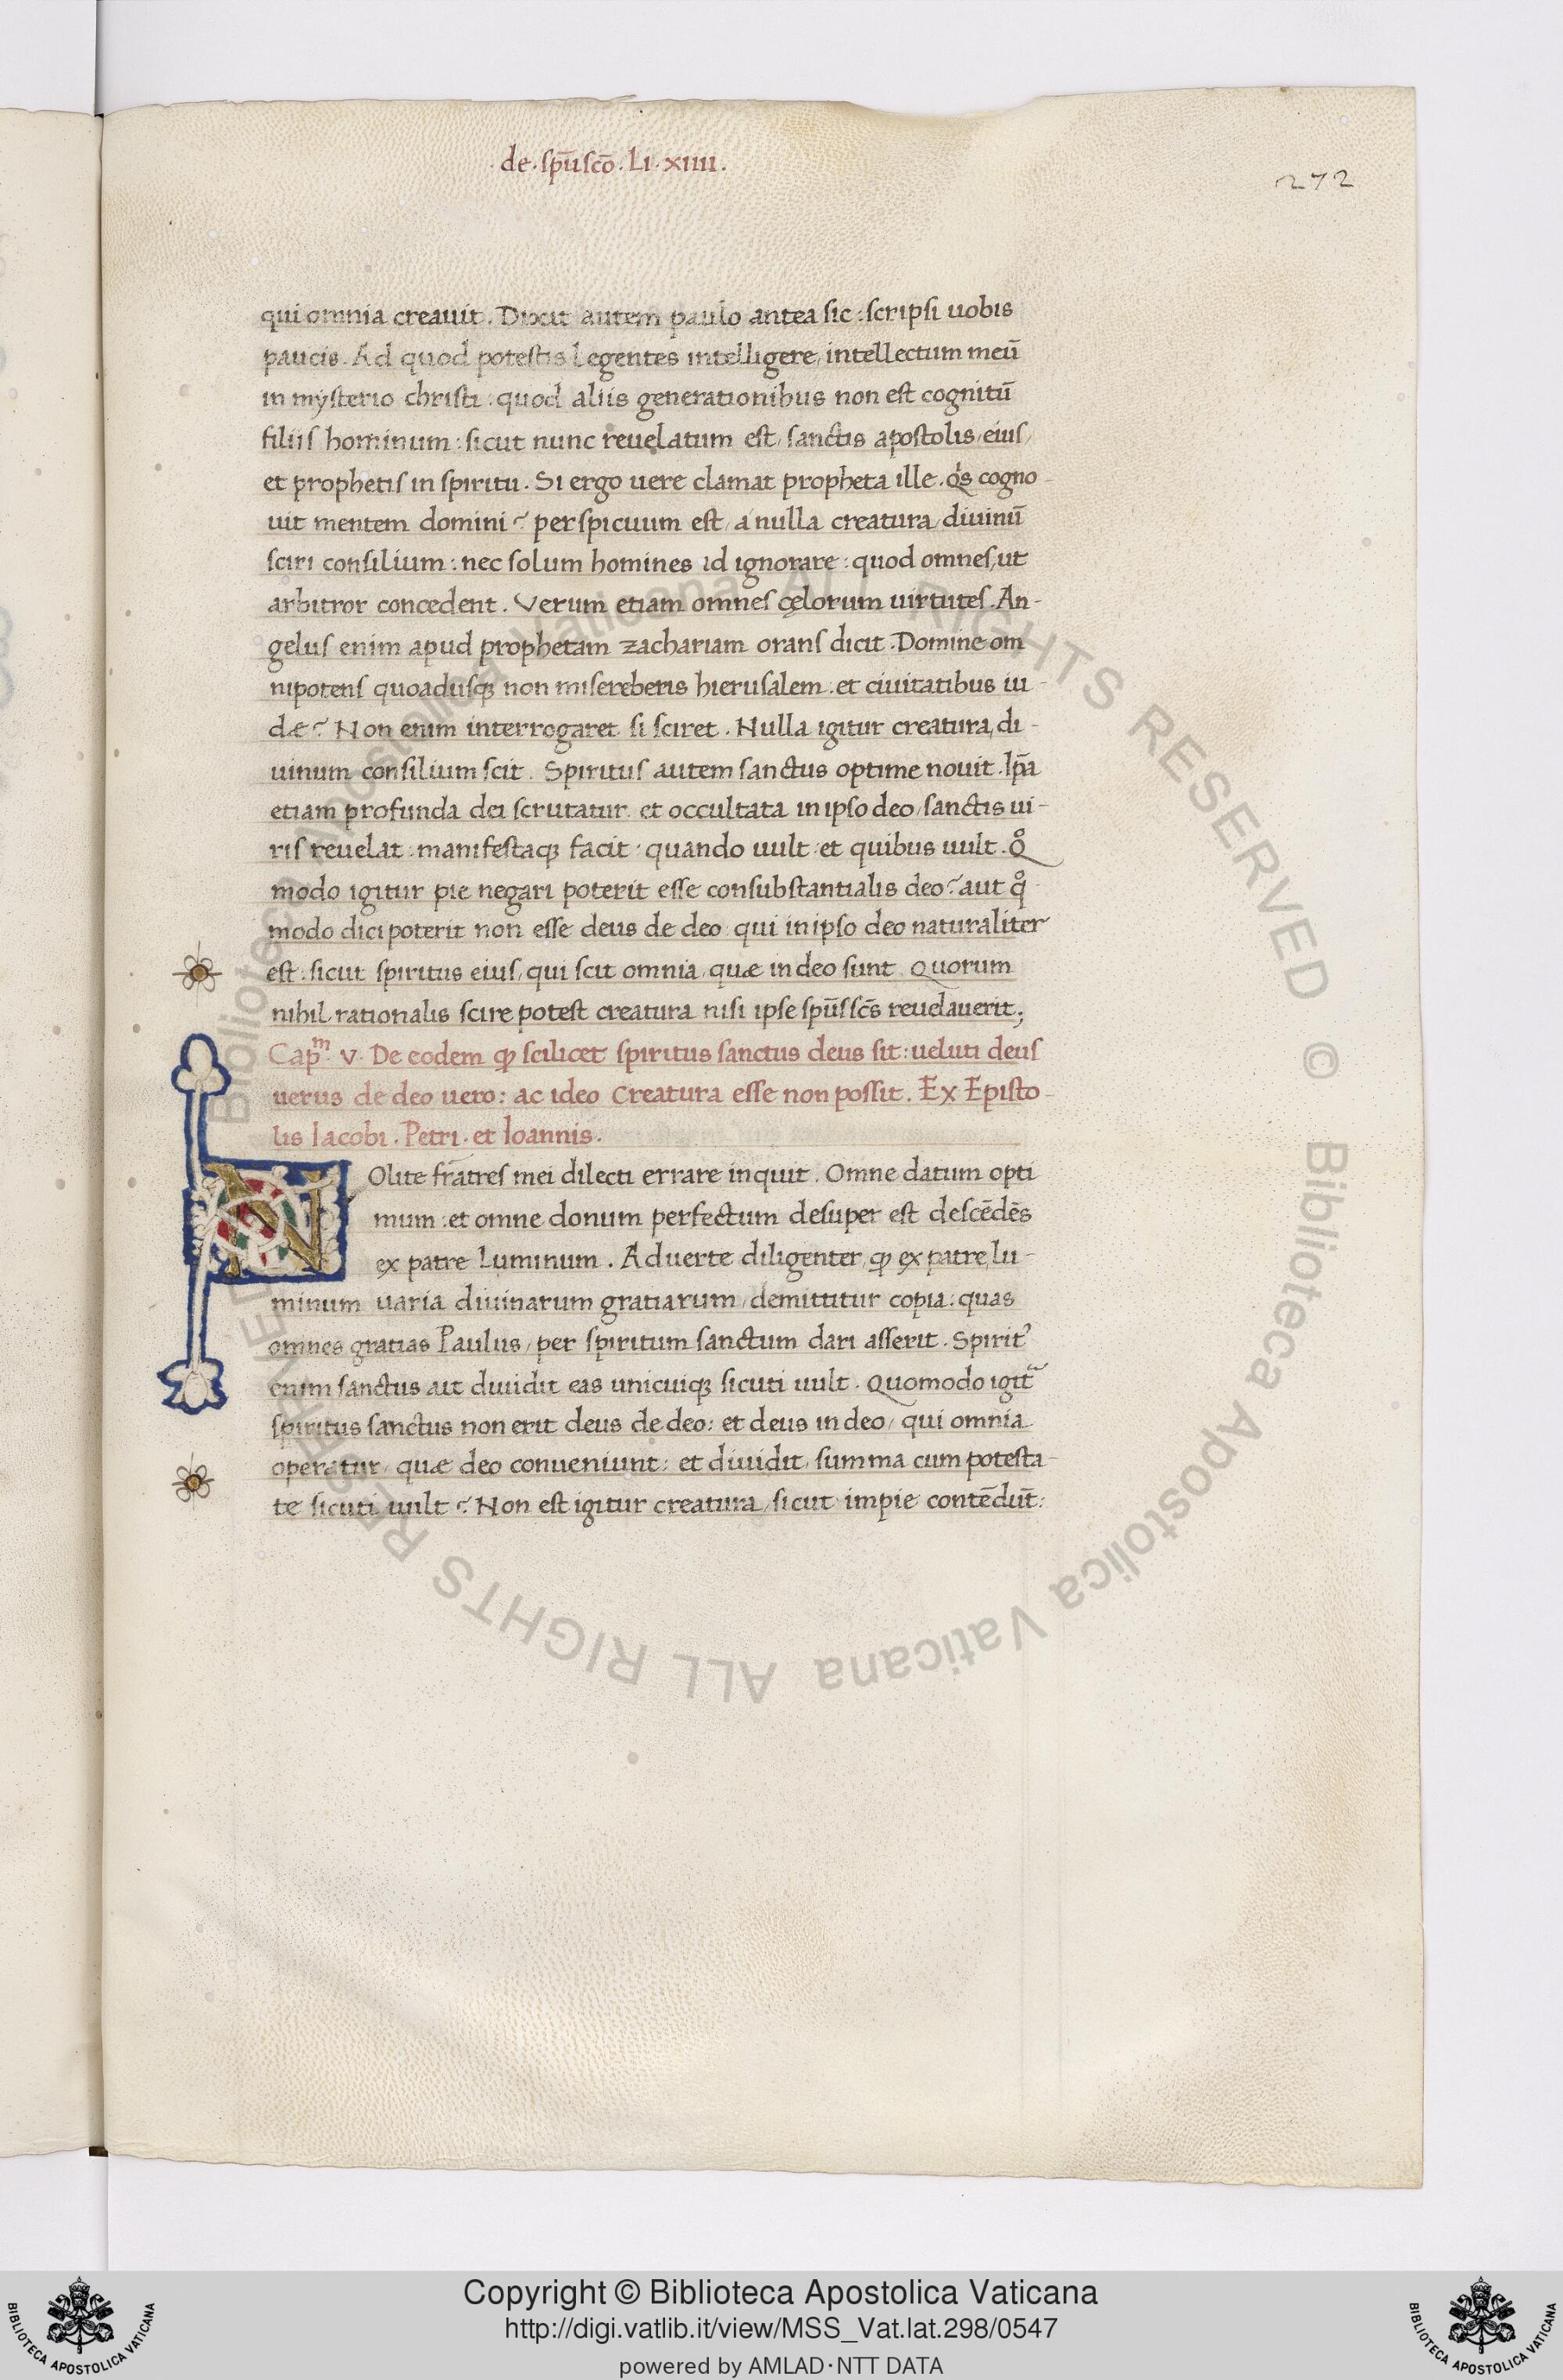 .de.sp̄u sc̄o.Li.xiiii.
272
qui omnia creauit. Dixit autem paulo antea sic: scripsi uobis
paucis. Ad quod potestis legentes intelligere, intellectum meū
in mysterio christi: quod aliis generationibus non est cognitū
filiis hominum: sicut nunc reuelatum est, sanctis apostolis, eius,
et prophetis in spiritu. Si ergo uere clamat propheta ille. qͥs cogno-
uit mentem domini? perspicuum est, a nulla creatura, diuinū
sciri consilium: nec solum homines id ignorare: quod omnes, ut
arbitror concedent. Verum etiam omnes cęlorum uirtutes. An-
gelus enim apud prophetam zachariam orans dicit. Domine om
nipotens quoadusqꝫ non misereberis hierusalem: et ciuitatibus iu-
dæ? Non enim interrogaret si sciret. Nulla igitur creatura, di-
uinum consilium scit. Spiritus autem sanctus optime nouit. Ip̄a
etiam profunda dei scrutatur. et occultata in ipso deo, sanctis ui-
ris reuelat: manifestaqꝫ facit: quando uult: et quibus uult. Qͦ
modo igitur pie negari poterit esse consubstantialis deo? aut qͦ
modo dici poterit non esse deus de deo: qui in ipso deo naturaliter
est: sicut spiritus eius, qui scit omnia, quæ in deo sunt. Quorum
nihil rationalis scire potest creatura nisi ipse sp̄us sc̄s reuelauerit;
Capᵐ. v. De eodem ꝙ scilicet spiritus sanctus deus sit: ueluti deus
uerus de deo uero: ac ideo creatura esse non possit. Ex Episto-
lis Iacobi. Petri. et Ioannis.
NOlite fratres mei dilecti errare inquit. Omne datum opti
mum: et omne donum perfectum desuper est descēdēs
ex patre luminum. Aduerte diligenter, ꝙ ex patre, lu-
minum uaria diuinarum gratiarum, demittitur copia: quas
omnes gratias Paulus, per spiritum sanctum dari asserit. Spiritꝰ
enim sanctus ait diuidit eas unicuiqꝫ sicuti uult. Quomodo igit᷑
spiritus sanctus non erit deus de deo: et deus in deo, qui omnia
operatur, quæ deo conueniunt: et diuidit, summa cum potesta-
te sicuti uult? Non est igitur creatura, sicut impie contēdūt:
Biblioteca Apostolica Vaticana ALL RIGHTS RESERVED © Biblioteca Apostolica Vaticana ALL RIGHTS RESERVED
Copyright © Biblioteca Apostolica Vaticana
http://digi.vatlib.it/view/MSS_Vat.lat.298/0547
powered by AMLAD·NTT DATA
BIBLIOTECA APOSTOLICA VATICANA
BIBLIOTECA APOSTOLICA VATICANA